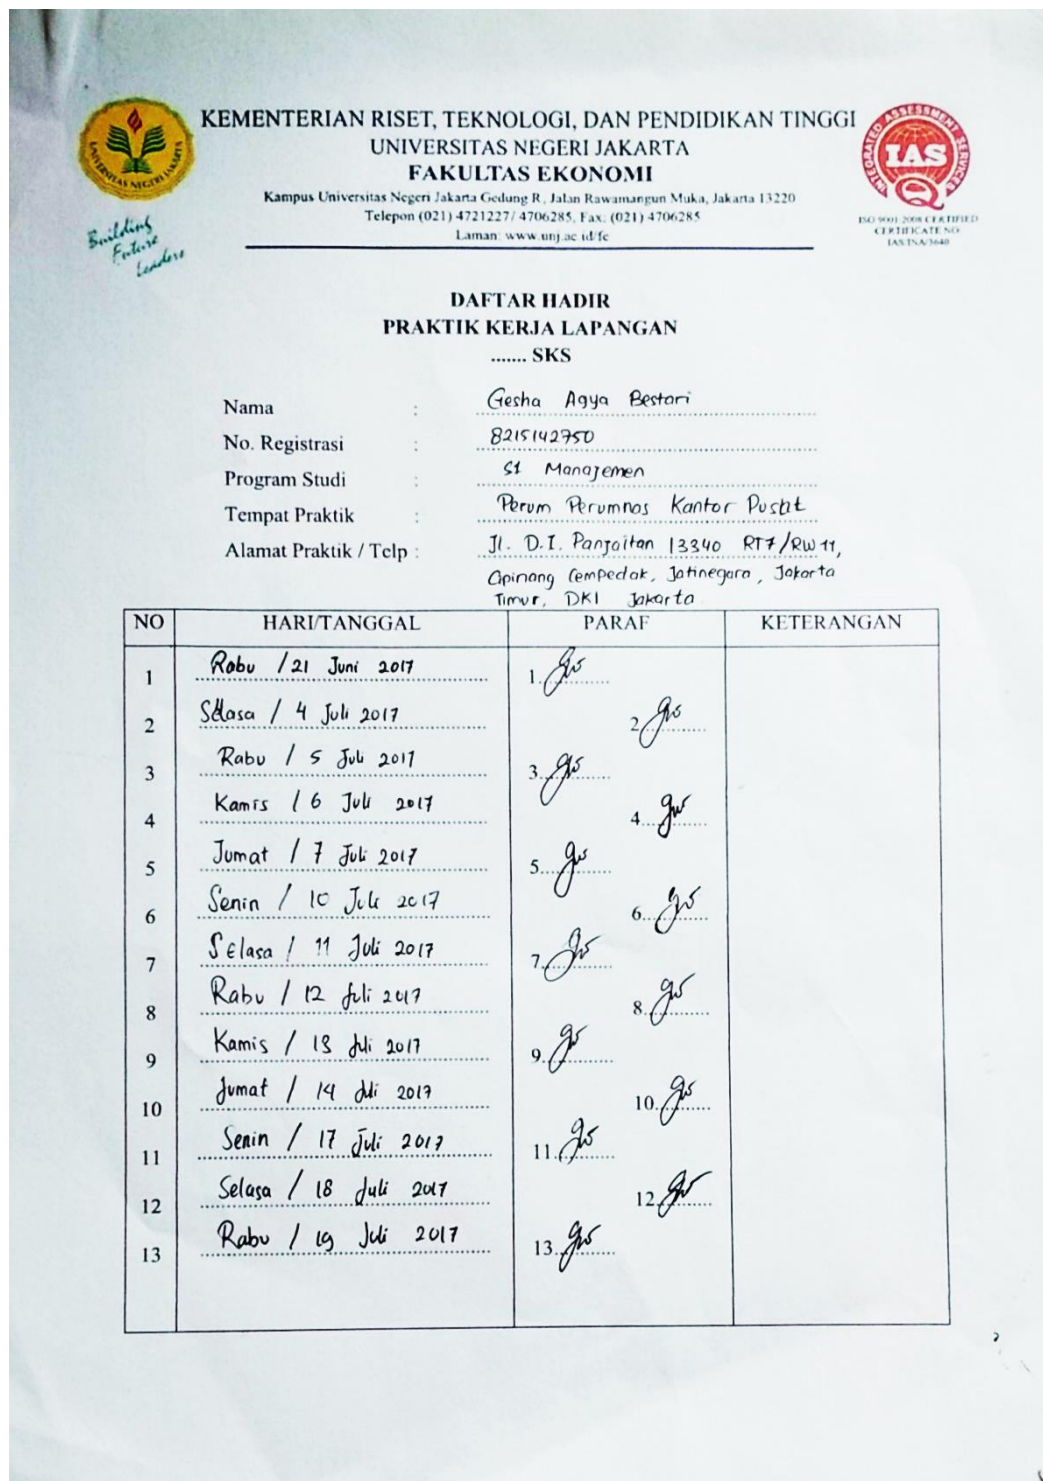 KEMENTERIAN RISET, TEKNOLOGI, DAN PENDIDIKAN TINGGI
UNIVERSITAS NEGERI JAKARTA
FAKULTAS EKONOMI
Kampus Universitas Negeri Jakarta Gedung R, Jalan Rawamangun Muka, Jakarta 13220
Telepon (021) 4721227/ 4706285, Fax: (021) 4706285
Laman: www.unj.ac.id/fe
UNIVERSITAS NEGERI JAKARTA
Building
Future
Leaders
INTEGRATED ASSESSMENT SERVICES
IAS
ISO 9001:2008 CERTIFIED
CERTIFICATE NO:
IAS/INA/3640
DAFTAR HADIR
PRAKTIK KERJA LAPANGAN
....... SKS
Nama : Gesha Agya Bestari
No. Registrasi : 8215142750
Program Studi : S1 Manajemen
Tempat Praktik : Perum Perumnas Kantor Pusat
Alamat Praktik / Telp : Jl. D.I. Panjaitan 13340 RT7/RW 11,
Cipinang Cempedak, Jatinegara, Jakarta
Timur, DKI Jakarta
NO HARI/TANGGAL PARAF KETERANGAN
1 Rabu / 21 Juni 2017 1.
2 Selasa / 4 Juli 2017 2
3 Rabu / 5 Juli 2017 3.
4 Kamis / 6 Juli 2017 4.
5 Jumat / 7 Juli 2017 5.
6 Senin / 10 Juli 2017 6.
7 Selasa / 11 Juli 2017 7.
8 Rabu / 12 Juli 2017 8.
9 Kamis / 13 Juli 2017 9.
10 Jumat / 14 Juli 2017 10.
11 Senin / 17 Juli 2017 11.
12 Selasa / 18 Juli 2017 12.
13 Rabu / 19 Juli 2017 13.